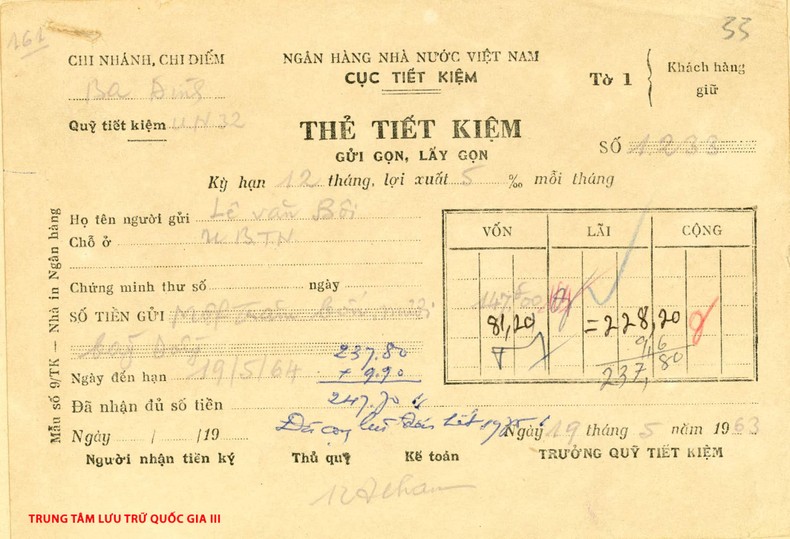 161
33
CHI NHÁNH, CHI ĐIẾM
Ba Đình
Quỹ tiết kiệm UN 32
NGÂN HÀNG NHÀ NƯỚC VIỆT NAM
CỤC TIẾT KIỆM
Tờ 1
Khách hàng
giữ
THẺ TIẾT KIỆM
GỬI GỌN, LẤY GỌN
SỐ 1.233
Kỳ hạn 12 tháng, lợi xuất 5 ‰ mỗi tháng
Họ tên người gửi Lê Văn Bôi
Chỗ ở UBTN
Chứng minh thư số ngày
SỐ TIỀN GỬI Một trăm bốn mươi
bảy đồng
Ngày đến hạn 19/5/64
Đã nhận đủ số tiền
Ngày / /19
VỐN LÃI CỘNG
147
81,20 = 228,20
9,6
237,80
237.80
+ 9.90
247.70
Ngày 19 tháng 5 năm 1963
Người nhận tiền ký Thủ quỹ Kế toán TRƯỞNG QUỸ TIẾT KIỆM
Mẫu số 9/TK — Nhà in Ngân hàng
TRUNG TÂM LƯU TRỮ QUỐC GIA III